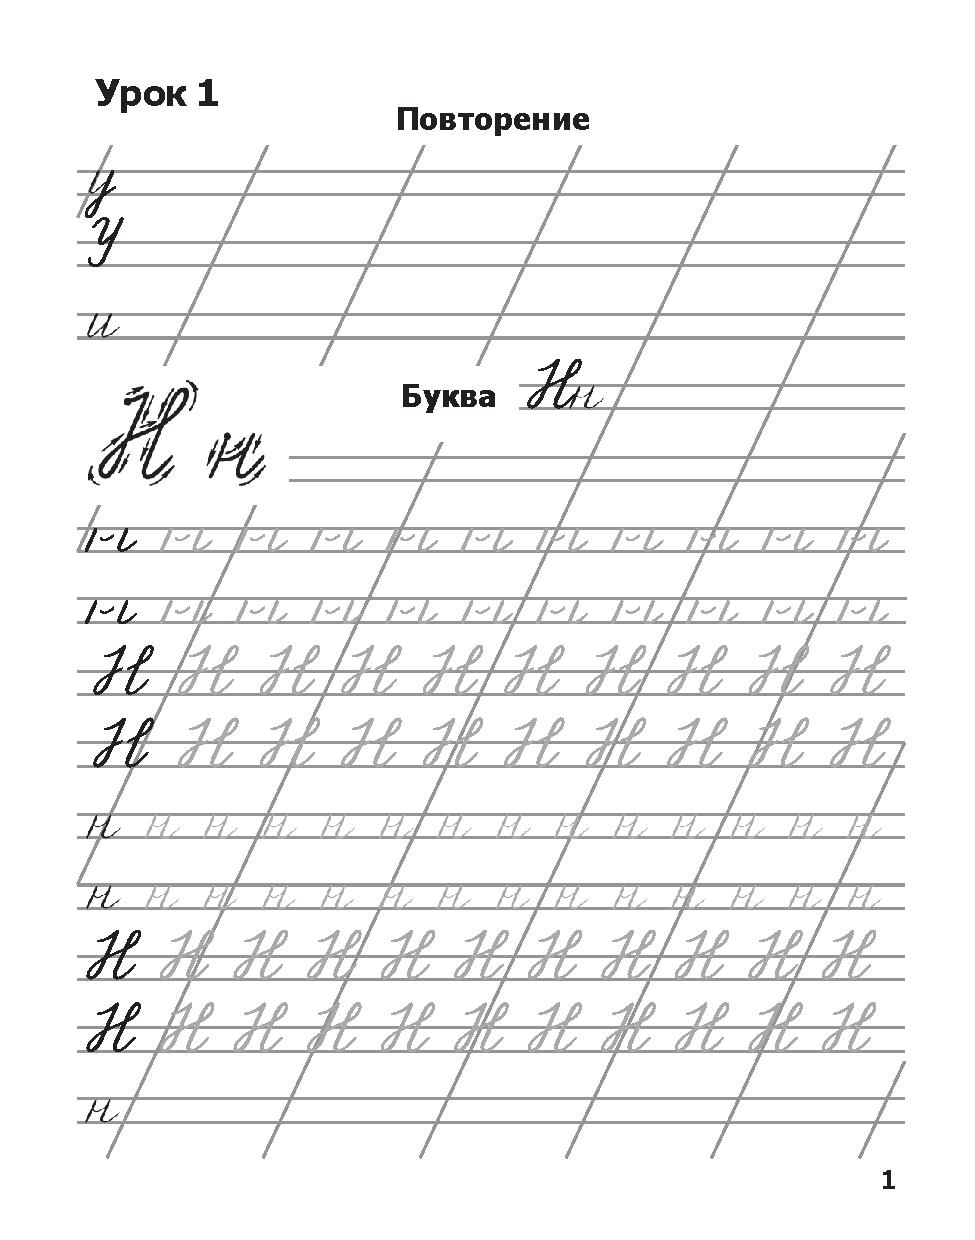 Урок 1
Повторение
у
У
и
Буква Нн
Н н
н н н н н н н н н н н
н н н н н н н н н н н
Н Н Н Н Н Н Н Н Н Н
Н Н Н Н Н Н Н Н Н Н
н н н н н н н н н н н н н н
н н н н н н н н н н н н н н
Н Н Н Н Н Н Н Н Н Н Н
Н Н Н Н Н Н Н Н Н Н Н
н
1